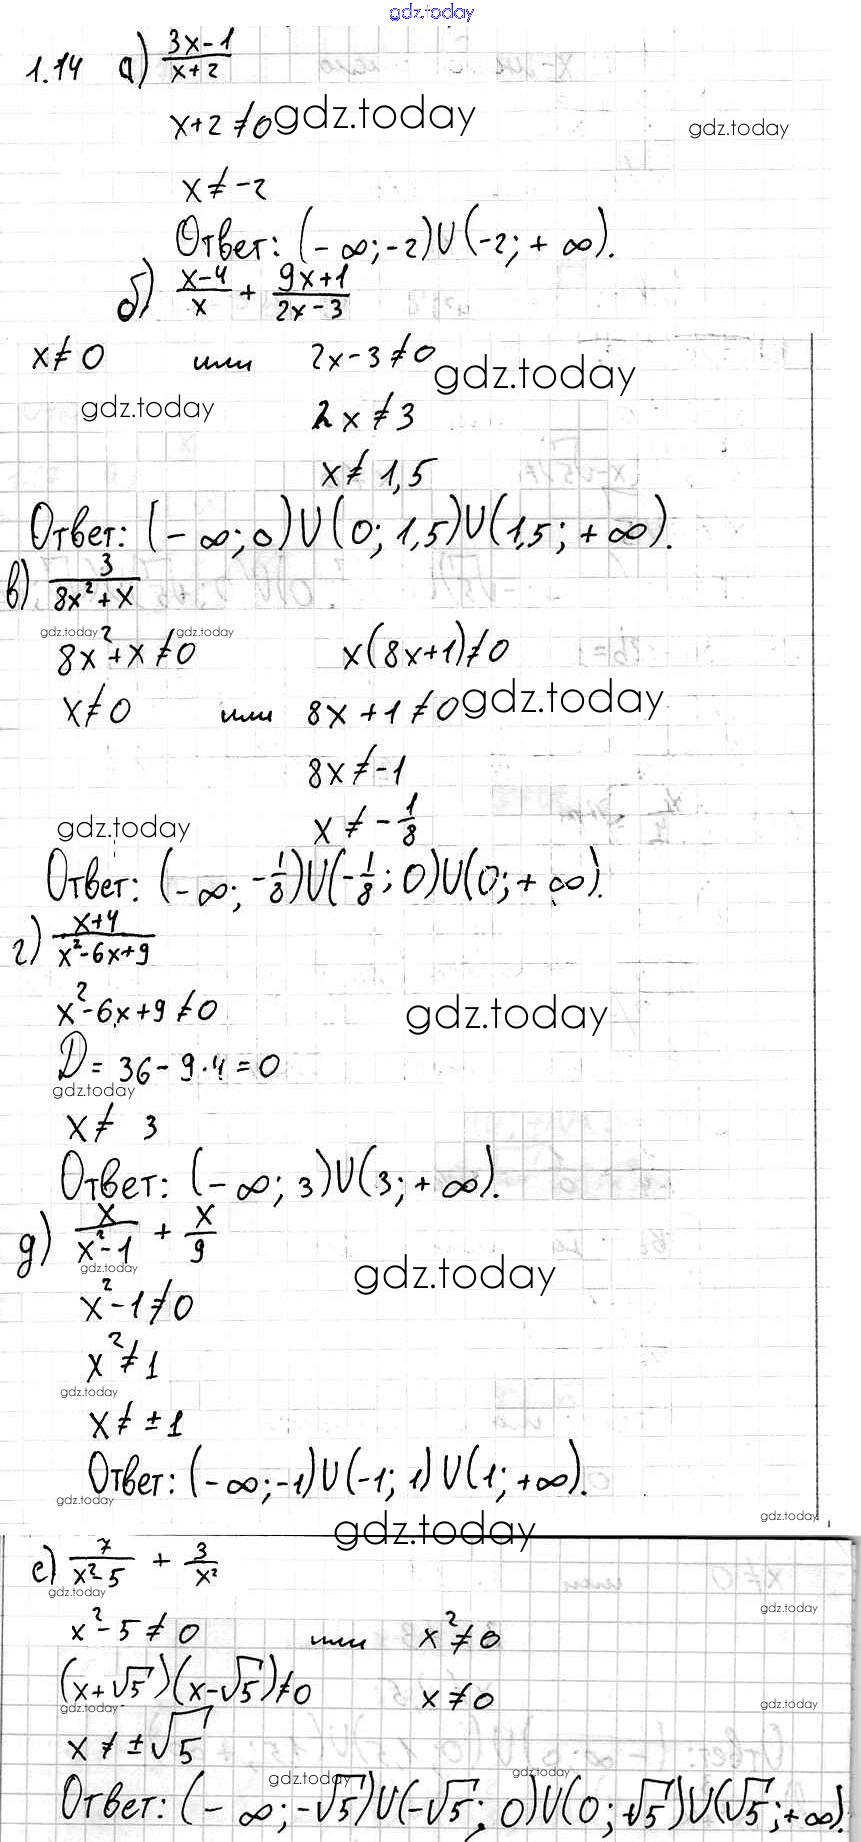 gdz.today
1.14 а) (3x-1)/(x+2)
x+2 ≠ 0 gdz.today gdz.today
x ≠ -2
Ответ: (-∞; -2)∪(-2; +∞).
б) (x-4)/x + (9x+1)/(2x-3)
x ≠ 0 или 2x-3 ≠ 0 gdz.today
gdz.today 2x ≠ 3
x ≠ 1,5
Ответ: (-∞; 0)∪(0; 1,5)∪(1,5; +∞).
в) 3/(8x²+x)
gdz.today gdz.today
8x²+x ≠ 0 x(8x+1) ≠ 0
x ≠ 0 или 8x+1 ≠ 0 gdz.today
8x ≠ -1
gdz.today x ≠ -1/8
Ответ: (-∞; -1/8)∪(-1/8; 0)∪(0; +∞).
г) (x+4)/(x²-6x+9)
x²-6x+9 ≠ 0 gdz.today
D = 36-9·4 = 0
gdz.today
x ≠ 3
Ответ: (-∞; 3)∪(3; +∞).
д) x/(x²-1) + x/9
gdz.today gdz.today
x²-1 ≠ 0
x² ≠ 1
gdz.today
x ≠ ±1
Ответ: (-∞; -1)∪(-1; 1)∪(1; +∞).
gdz.today gdz.today
gdz.today
е) 7/(x²-5) + 3/x²
gdz.today gdz.today
x²-5 ≠ 0 или x² ≠ 0
(x+√5)(x-√5) ≠ 0 x ≠ 0
gdz.today gdz.today
x ≠ ±√5
gdz.today gdz.today
Ответ: (-∞; -√5)∪(-√5; 0)∪(0; √5)∪(√5; +∞).